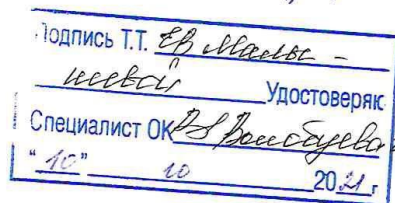 Подпись Т.Т. ЕВ Малы-
шевой Удостоверяю
Специалист ОК
"10" 10 2021 г